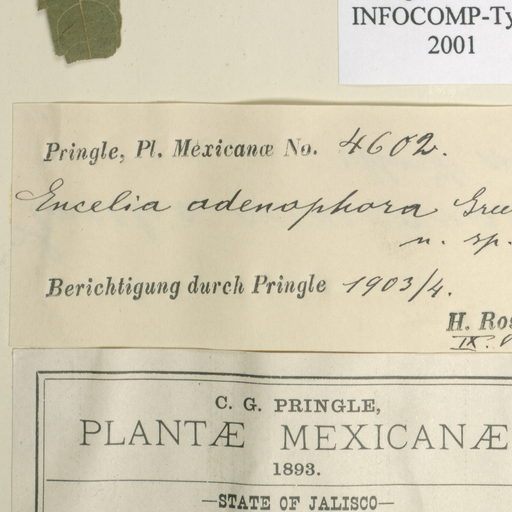 INFOCOMP-Ty
2001
Pringle, Pl. Mexicanæ No. 4602.
Encelia adenophora Gree
n. sp.
Berichtigung durch Pringle 1903/4.
H. Ros
IX.
C. G. PRINGLE,
PLANTÆ MEXICANÆ
1893.
—STATE OF JALISCO—